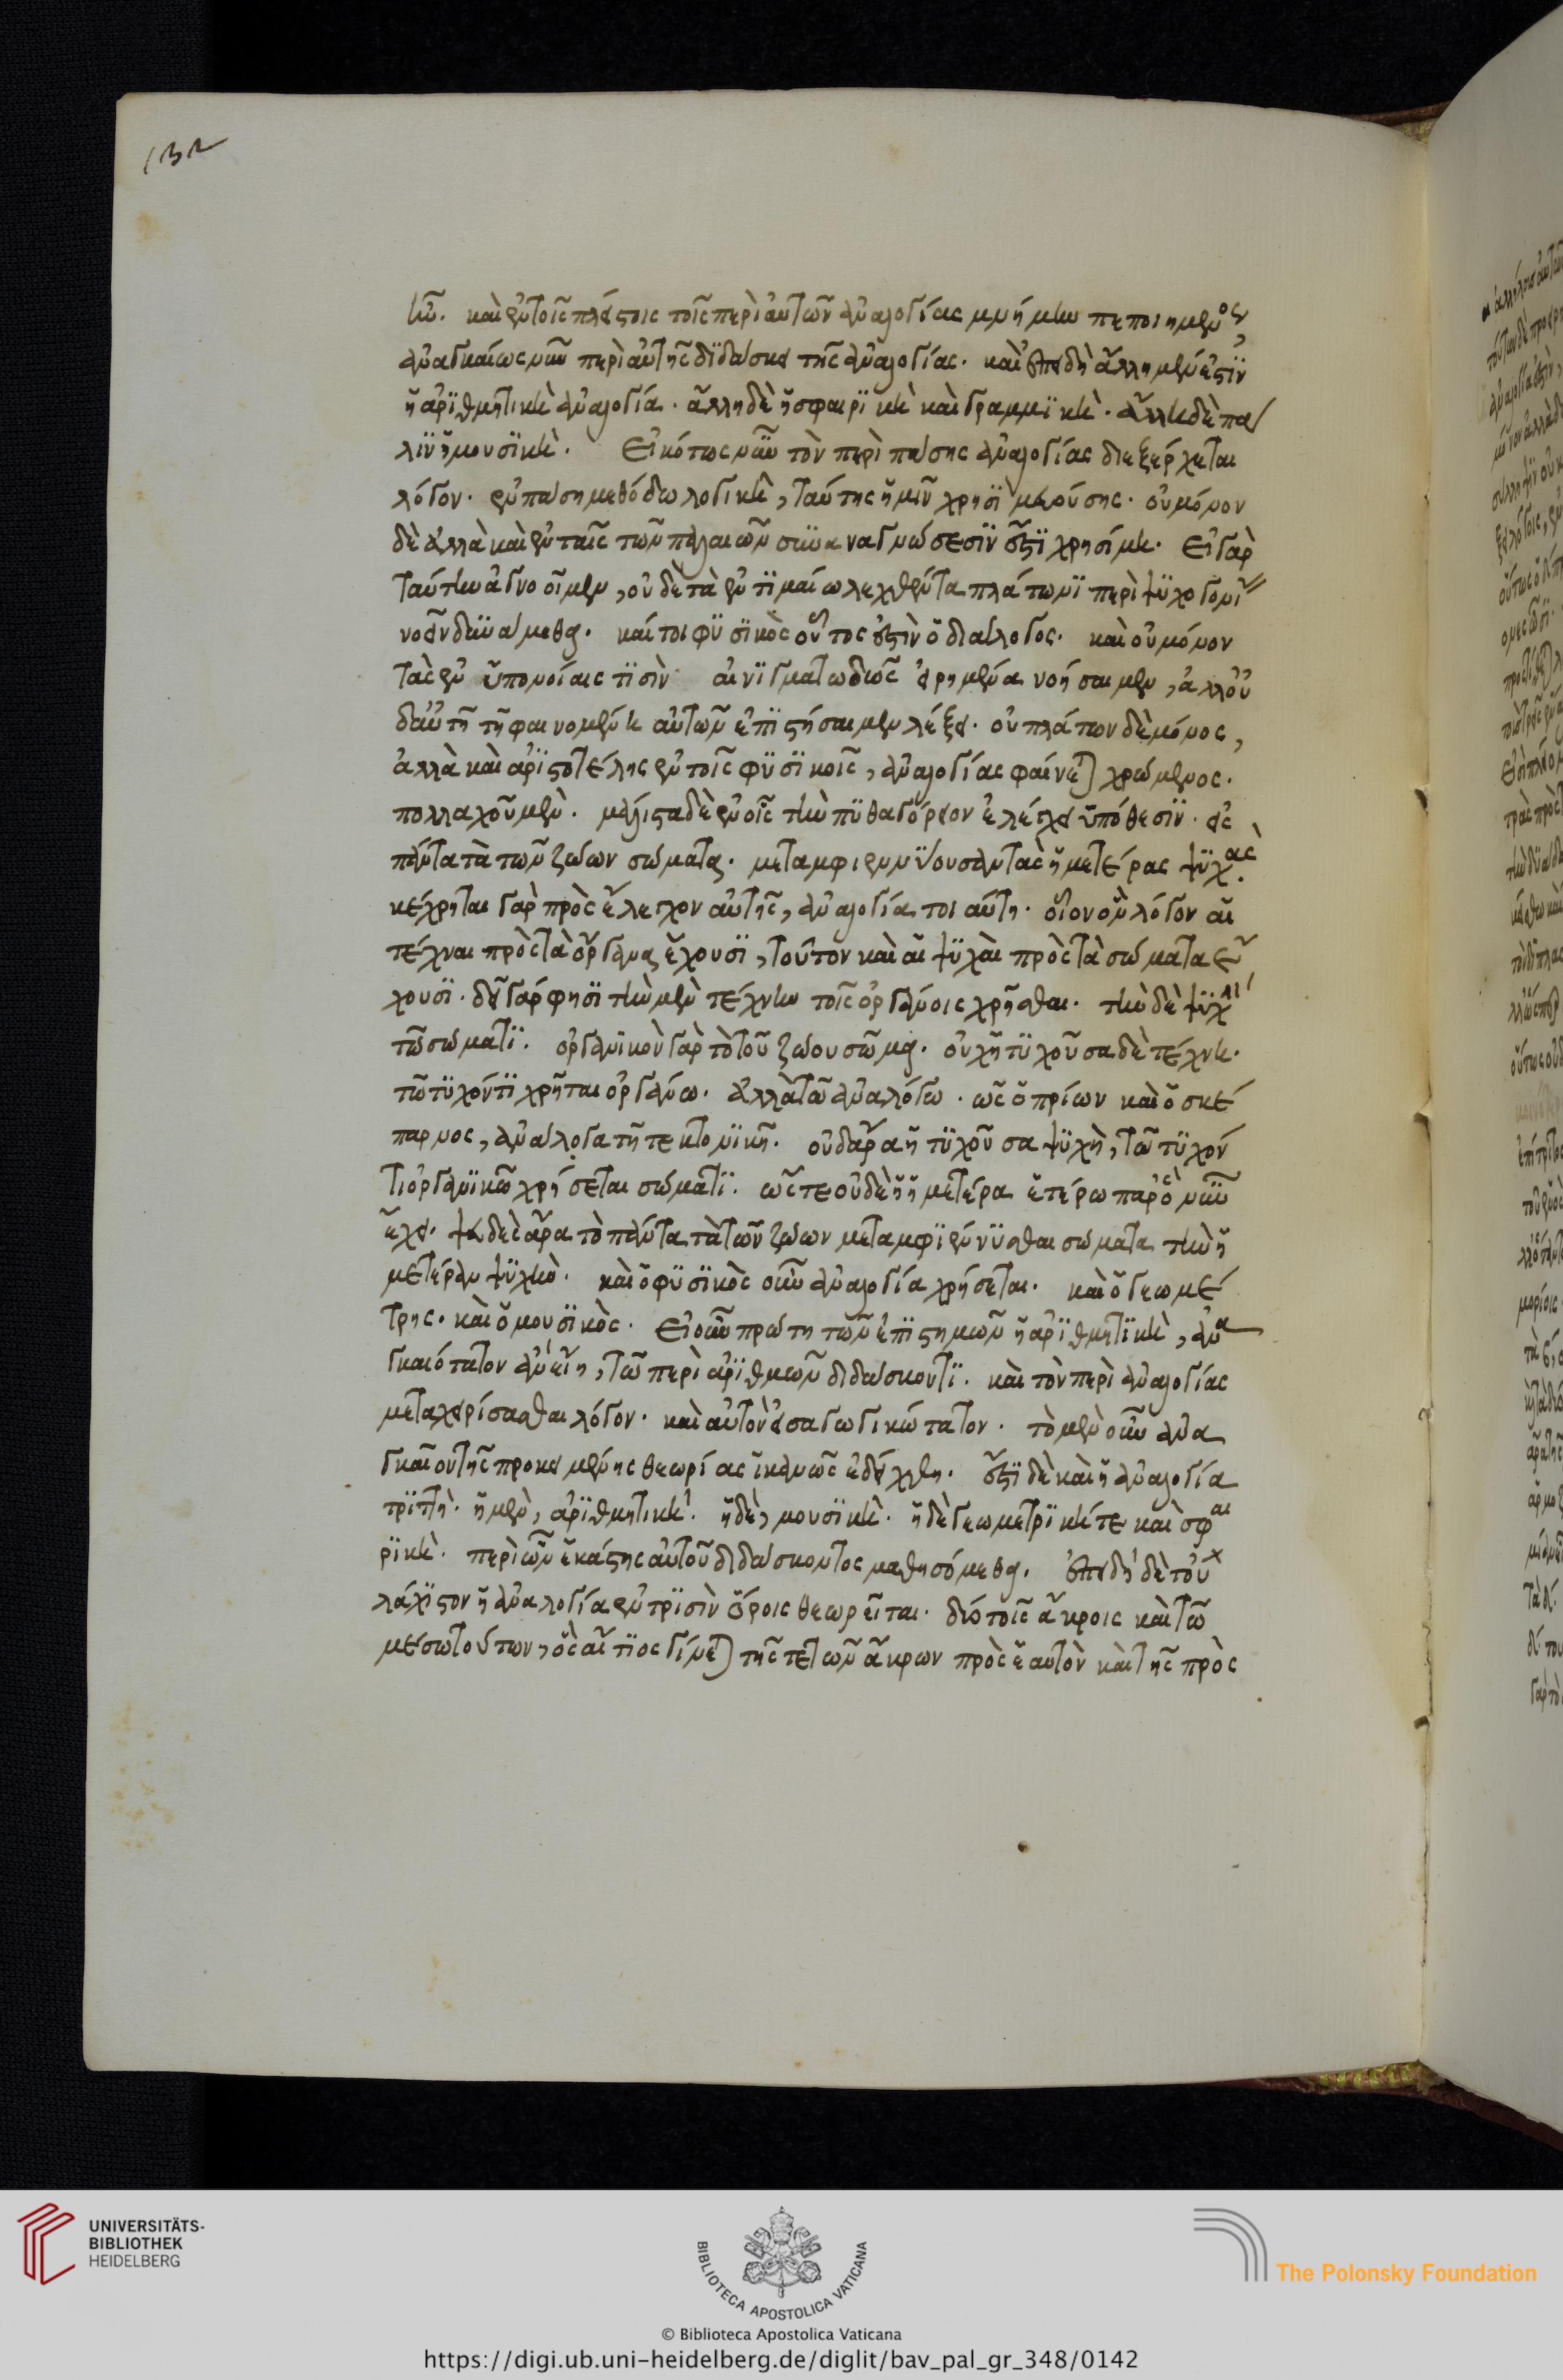 132
κῶν. καὶ ἐν τοῖς πλείστοις τοῖς περὶ αὐτῶν ἀναλογίας μνήμην πεποιημένος,
ἀναγκαίως νῦν περὶ αὐτῆς διδάσκει τῆς ἀναλογίας. καὶ ἐπειδὴ ἄλλη μέν ἐστιν
ἡ ἀριθμητικὴ ἀναλογία. ἄλλη δὲ ἡ σφαιρικὴ καὶ γραμμικὴ. ἄλλη δὲ πά
λιν ἡ μουσικὴ. Εἰκότως νῦν τὸν περὶ πάσης ἀναλογίας διεξέρχεται
λόγον. ἐν πάση μεθόδω λογικῆ, ταύτης ἡμῖν χρησιμευούσης. οὐ μόνον
δὲ ἀλλὰ καὶ ἐν ταῖς τῶν παλαιῶν συναναγνώσεσιν ἐστὶ χρησίμη. Εἰ γὰρ
ταύτην ἀγνοοῖμεν, οὐδὲ τὰ ἐν τιμαίω λεχθέντα πλάτωνι περὶ ψυχογονί
νοεῖν δυνάμεθα. καίτοι φυσικὸς οὗτος ἐστὶν ὁ διάλογος. καὶ οὐ μόνον
τὰς ἐν ὑπονοίαις τισὶν αἰνιγματωδῶς εἰρημένα νοήσαιμεν, ἀλλ' οὐ
δ' αὐτῆ τῆ φαινομένη αὐτῶν ἐπιστήσαιμεν λέξει. οὐ πλάτων δὲ μόνος,
ἀλλὰ καὶ ἀριστοτέλης ἐν τοῖς φυσικοῖς, ἀναλογίας φαίνεται χρώμενος.
πολλαχοῦ μὲν. μάλιστα δὲ ἐν οἷς τὴν πυθαγόρειον ἐλέγχει ὑπόθεσιν. εἰς
πάντα τὰ τῶν ζώων σώματα. μεταμφιεννύουσαν τὰς ἡμετέρας ψυχὰς.
κέχρηται γὰρ πρὸς ἔλεγχον αὐτῆς, ἀναλογία τοιαύτη. οἷον ὃν λόγον αἱ
τέχναι πρὸς τὰ ὄργανα ἔχουσι, τοῦτον καὶ αἱ ψυχαὶ πρὸς τὰ σώματα ἔ
χουσι. δεῖ γάρ φησι τὴν μὲν τέχνην τοῖς ὀργάνοις χρῆσθαι. τὴν δὲ ψυχὴν
τῶ σώματι. ὀργανικὸν γὰρ τὸ τοῦ ζώου σῶμα. οὐχ ἡ τυχοῦσα δὲ τέχνη.
τῶ τυχόντι χρῆται ὀργάνω. ἀλλὰ τῶ ἀναλόγω. ὡς ὁ πρίων καὶ ὁ σκέ
παρνος, ἀνάλογα τῆ τεκτονικῆ. οὐδ' ἄρα ἡ τυχοῦσα ψυχὴ, τῶ τυχόν
τι ὀργανικῶ χρήσεται σώματι. ὥστε οὐδὲ ἡ ἡμετέρα ἑτέρω παρ' ὃ νῦν
ἔχει. ψευδὲς ἄρα τὸ πάντα τὰ τῶν ζώων μεταμφιέννυσθαι σώματα τὴν ἡ
μετέραν ψυχὴν. καὶ ὁ φυσικὸς οὖν ἀναλογία χρήσεται. καὶ ὁ γεωμέ
τρης. καὶ ὁ μουσικὸς. Εἰ οὖν πρώτη τῶν ἐπιστημῶν ἡ ἀριθμητικὴ, ἀνα
γκαιότατον ἂν εἴη, τῶ περὶ ἀριθμῶν διδάσκοντι. καὶ τὸν περὶ ἀναλογίας
μεταχειρίσασθαι λόγον. καὶ αὐτὸν εἰσαγωγικώτατον. τὸ μὲν οὖν ἀνα
γκαῖον τῆς προκειμένης θεωρίας ἱκανῶς ἐδείχθη. ἐστὶ δὲ καὶ ἡ ἀναλογία
τριττὴ. ἡ μὲν, ἀριθμητικὴ. ἡ δὲ, μουσικὴ. ἡ δὲ γεωμετρική τε καὶ σφαι
ρικὴ. περὶ ὧν ἑκάστης αὐτοῦ διδάσκοντος μαθησόμεθα. ἐπειδὴ δὲ τοὐ
λάχιστον ἡ ἀναλογία ἐν τρισὶν ὅροις θεωρεῖται. δυὸ τοῖς ἄκροις καὶ τῶ
μέσω τούτων, ὃς αἴτιος γίνεται τῆς τε τῶν ἄκρων πρὸς ἑαυτὸν καὶ τῆς πρὸς
UNIVERSITÄTS-
BIBLIOTHEK
HEIDELBERG
BIBLIOTECA APOSTOLICA VATICANA
The Polonsky Foundation
© Biblioteca Apostolica Vaticana
https://digi.ub.uni-heidelberg.de/diglit/bav_pal_gr_348/0142